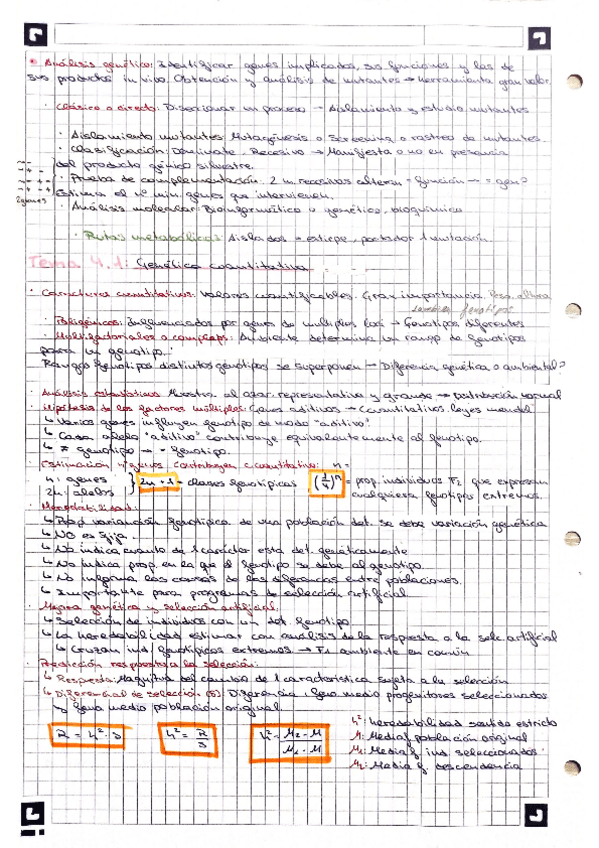 • Análisis genético: Identificar genes implicados, sus funciones y las de
sus productos in vivo. Obtención y análisis de mutantes → herramienta gran valor.
· Clásico o directo: Diseccionar un proceso → Aislamiento y estudio mutantes
· Aislamiento mutantes: Mutagénesis o Screening o rastreo de mutantes.
· Clasificación: Dominante - Recesivo → Manifiesta o no en presencia
del producto génico silvestre.
· Prueba de complementación: 2 m. recesivos alteran = función → = gen?
Estima el nº min. genes que intervienen.
2 genes
· Análisis molecular: Bioinformático o genético, bioquímico
· Rutas metabólicas: Aislados = estirpe, portador 1 mutación.
Tema 4.1: Genética cuantitativa
· Caracteres cuantitativos: Valores cuantificables. Gran importancia. Peso, altura
· Poligénicos: Influenciados por genes de múltiples loci → Genotipos diferentes
fenotipos
· Multifactoriales o complejos: Ambiente determina un rango de fenotipos
para un genotipo.
Rangos fenotipos distintos genotipos se superponen → Diferencia genética o ambiental?
· Análisis estadístico: Muestra al azar, representativa y grande → Distribución normal
· Hipótesis de los factores múltiples: Genes aditivos → Cuantitativos. leyes mendel
↳ Varios genes influyen fenotipo de modo "aditivo"
↳ Cada alelo "aditivo" contribuye equivalentemente al fenotipo.
↳ ≠ genotipo → = fenotipo.
· Estimación nº genes contribuyen c. cuantitativo: n =
n: genes
2n: alelos
2n + 1 = clases genotípicas
(1/4)ⁿ = prop. individuos F₂ que expresan
cualquiera fenotipos extremos.
· Heredabilidad:
↳ Prop. variación fenotípica de una población det. se debe variación genética
↳ NO es fija.
↳ No indica cuanto de 1 carácter esta det. genéticamente
↳ No indica prop. en la que el fenotipo se debe al genotipo.
↳ No informa las causas de las diferencias entre poblaciones.
↳ Importante para programas de selección artificial
· Mejora genética y selección artificial:
↳ Selección de individuos con un det. fenotipo
↳ La heredabilidad estimar con análisis de la respuesta a la selc. artificial
↳ Cruzan ind/ genotípicos extremos → F1 ambiente en común
· Predicción respuesta a la selección:
↳ Respuesta: Magnitud del cambio de 1 característica sujeta a la selección
↳ Diferencial de selección (S): Diferencia: feno medio progenitores seleccionados
y feno medio población original.
R = h² · S
h² = R/S
h² = M₂ - M / M₁ - M
h²: heredabilidad sentido estricto
M: Media f. población original
M₁: Media f. ind. seleccionados
M₂: Media f. descendencia